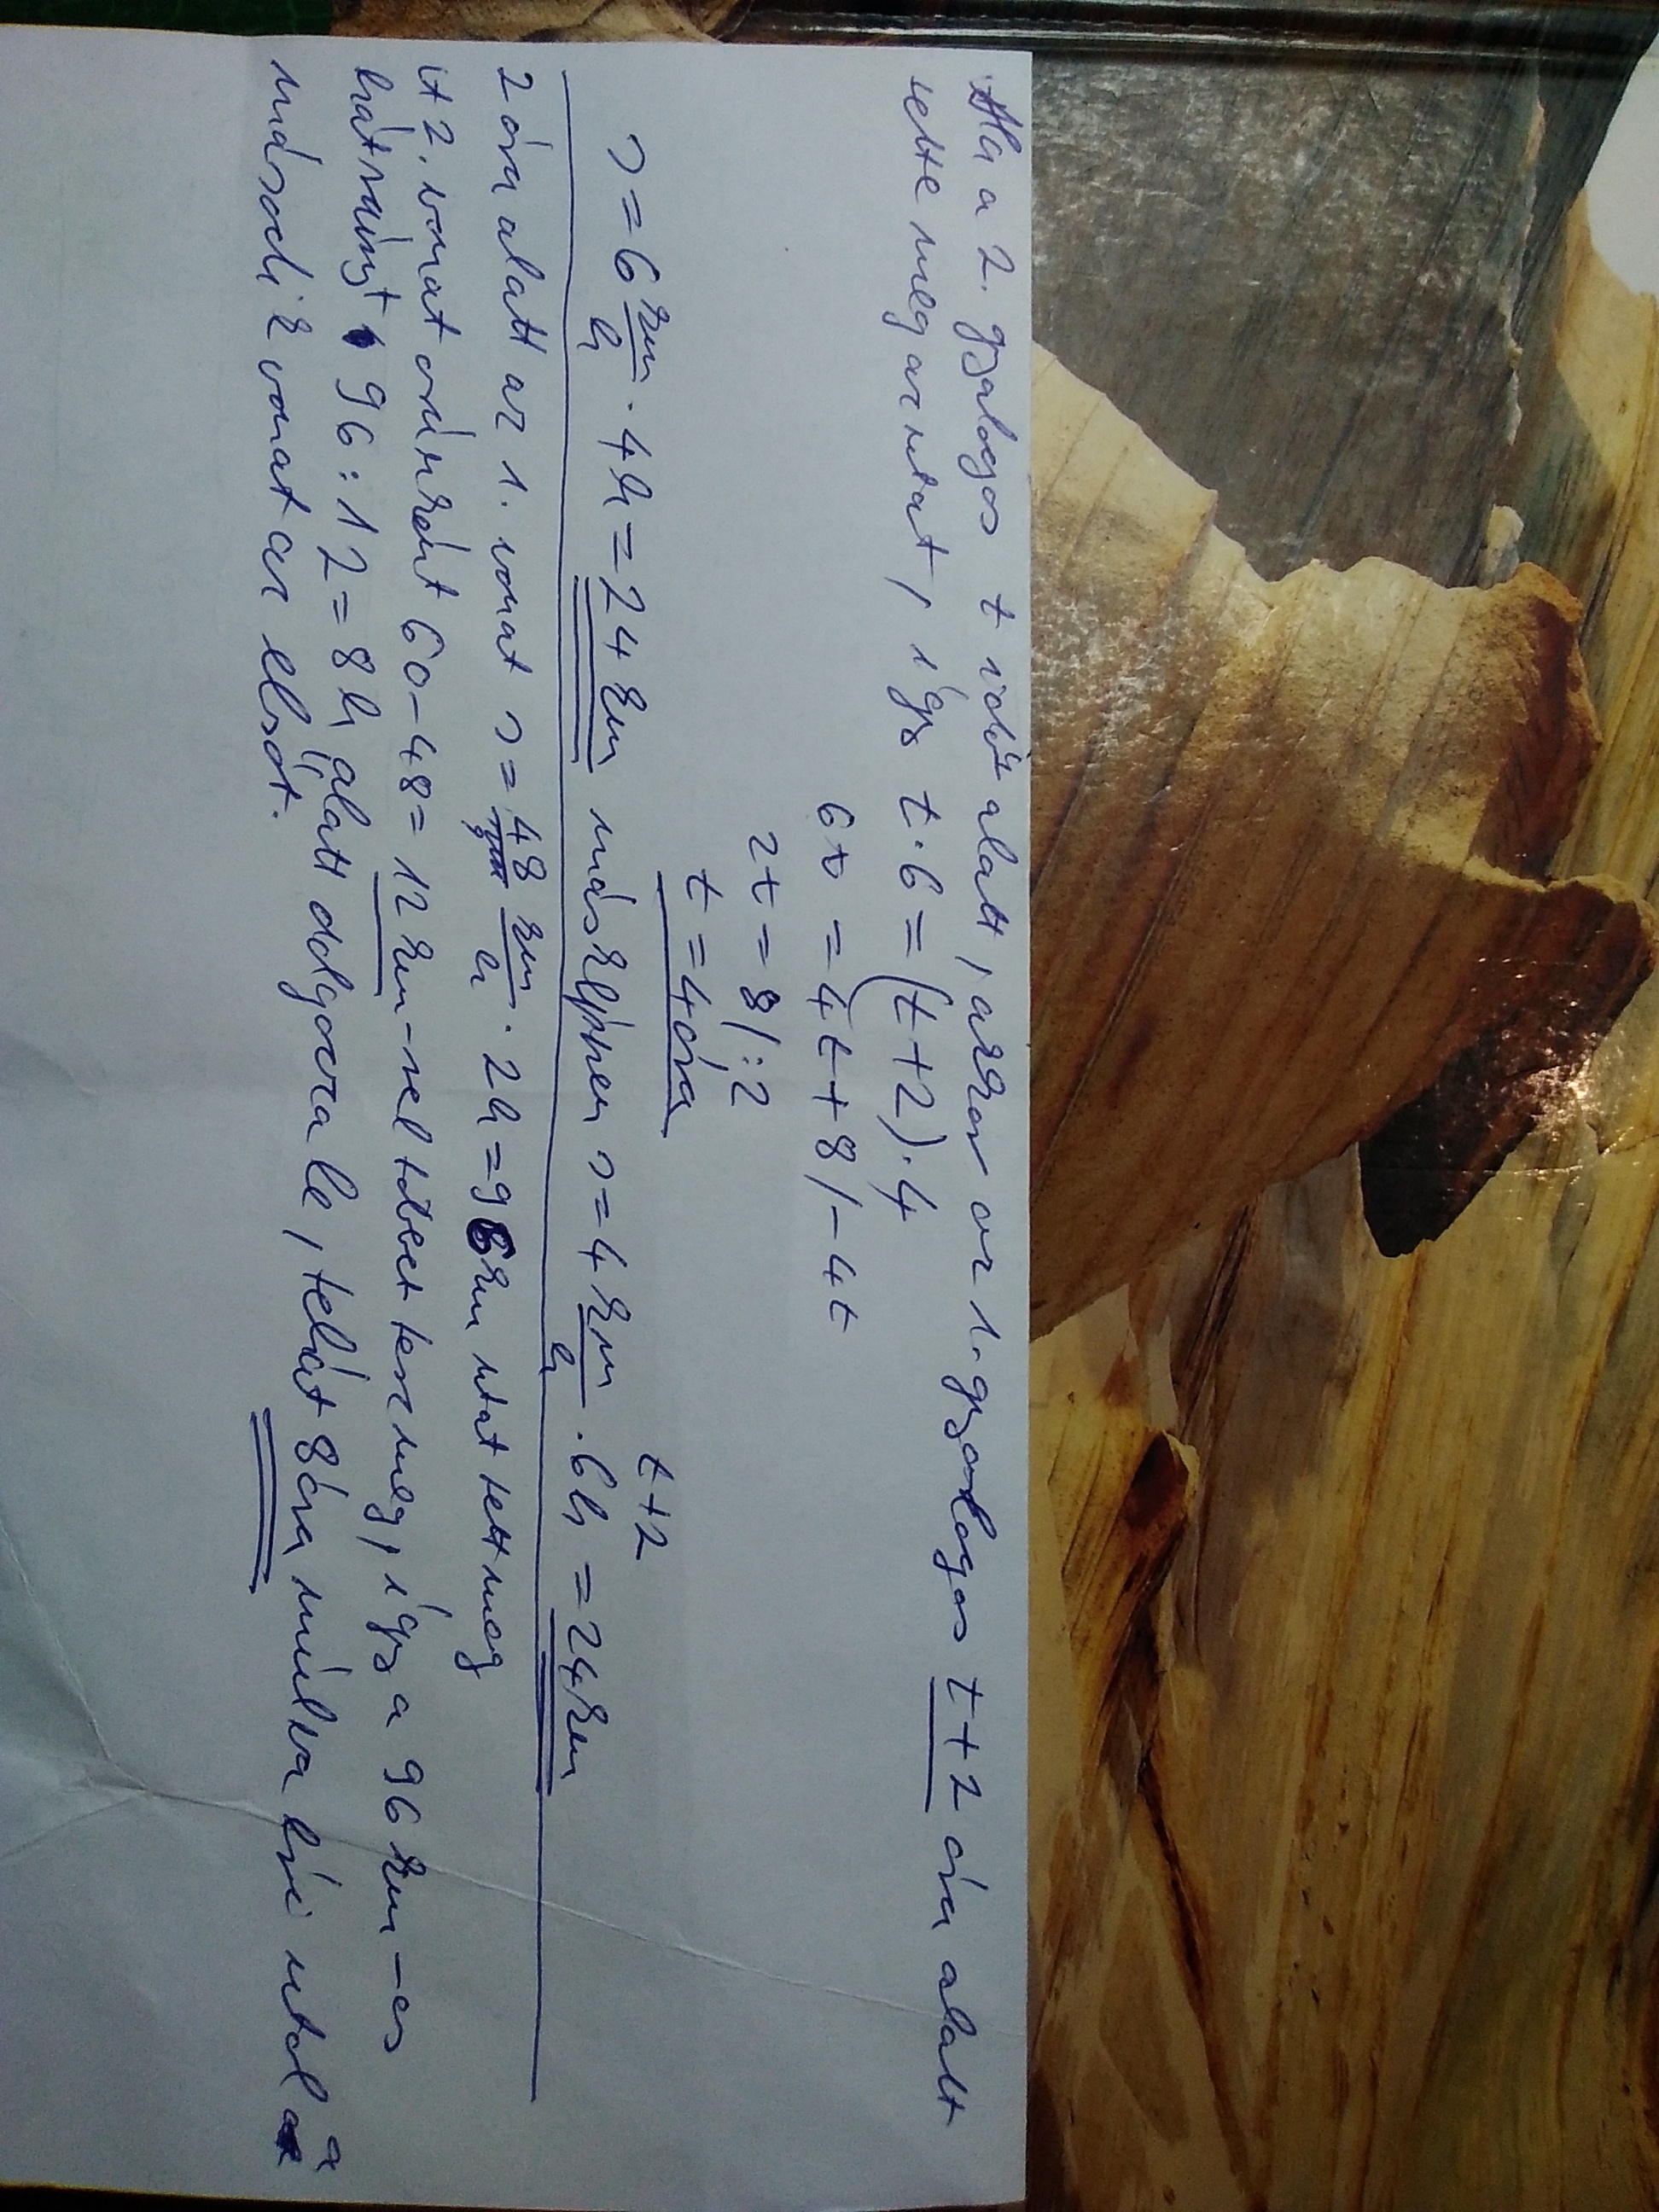 Ha a 2. gyalogos t idő alatt, akkor az 1. gyalogos t+2 óra alatt
tette meg az utat, így t·6=(t+2)·4
6t = 4t+8/-4t
2t = 8/:2
t = 4óra
t+2
s=6 km/h · 4h = 24km másképpen s=4 km/h · 6h = 24km
2 óra alatt az 1. vonat s= 48 km/h · 2h = 96km utat tett meg
A 2. vonat óránként 60-48= 12km-rel többet tesz meg, így a 96km-es
hátrányt 96:12=8h alatt dolgozza le, tehát 8óra múlva éri utol a
második vonat az elsőt.